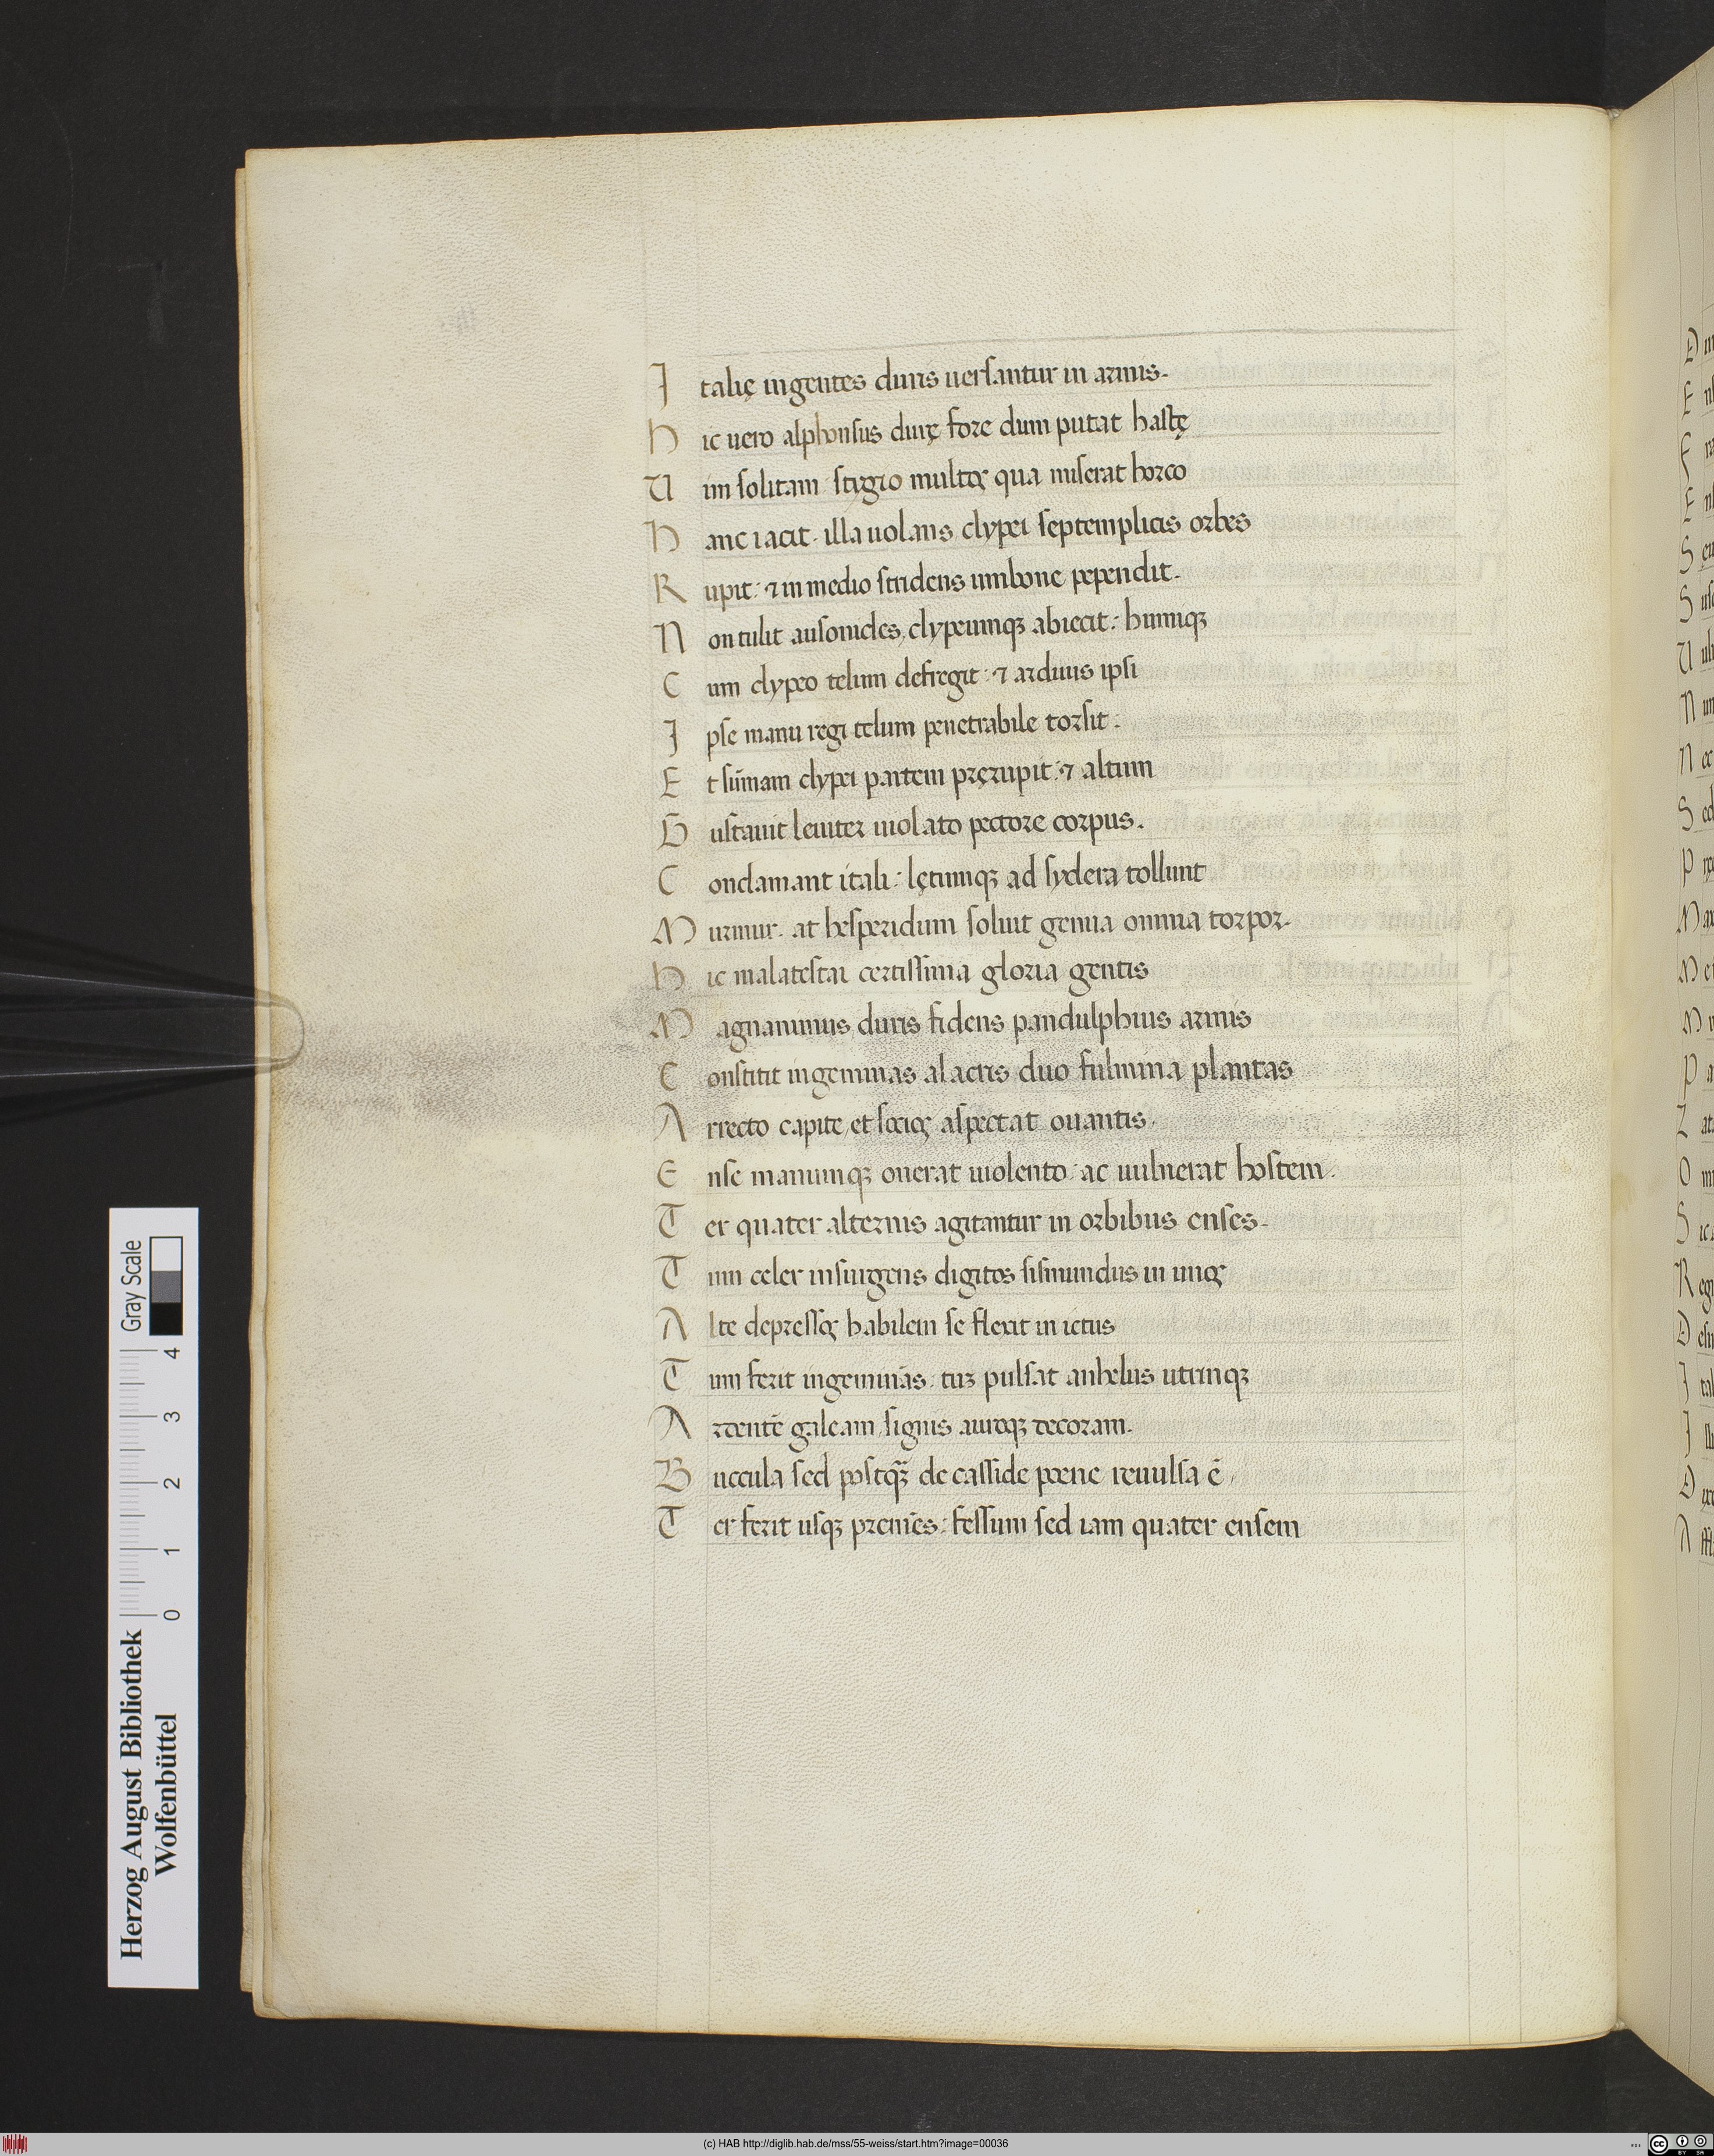 Italię ingentes duris uersantur in armis.
Hic uero alphonsus durę fore dum putat hastę
Uim solitam: stygio multos qua miserat horco
Hanc iacit. illa uolans clypei septemplicis orbes
Rupit: ⁊ in medio stridens umbone pependit.
Non tulit ausonides, clypeumqꝫ abiecit: humiqꝫ
Cum clypeo telum defregit: ⁊ arduus ipsi
Ipse manu regi telum penetrabile torsit:
Et sūmam clypei partem pręrupit: ⁊ altum
Gustauit leuiter uiolato pectore corpus.
Conclamant itali: lętumqꝫ ad sydera tollunt
Murmur. at hesperidum soluit genua omnia torpor.
Hic malatestai certissima gloria gentis
Magnanimus, duris fidens pandulphius armis
Constitit ingeminas alacris duo fulmina plantas
Arrecto capite, et socios aspectat ouantis.
Ense manumqꝫ onerat uiolento: ac uulnerat hostem.
Ter quater alternis agitantur in orbibus enses.
Tum celer insurgens digitos sismundus in imos
Alte depressos habilem se flexit in ictus
Tum ferit ingeminās: tꝫ pulsat anhelus utrinqꝫ
Ardentē galeam, signis auroqꝫ decoram.
Buccula sed postqꝫ̄ de casside poene reuulsa ē.
Ter ferit usqꝫ premēs: fessum sed iam quater ensem
Herzog August Bibliothek
Wolfenbüttel
0 1 2 3 4
Gray Scale
(c) HAB http://diglib.hab.de/mss/55-weiss/start.htm?image=00036